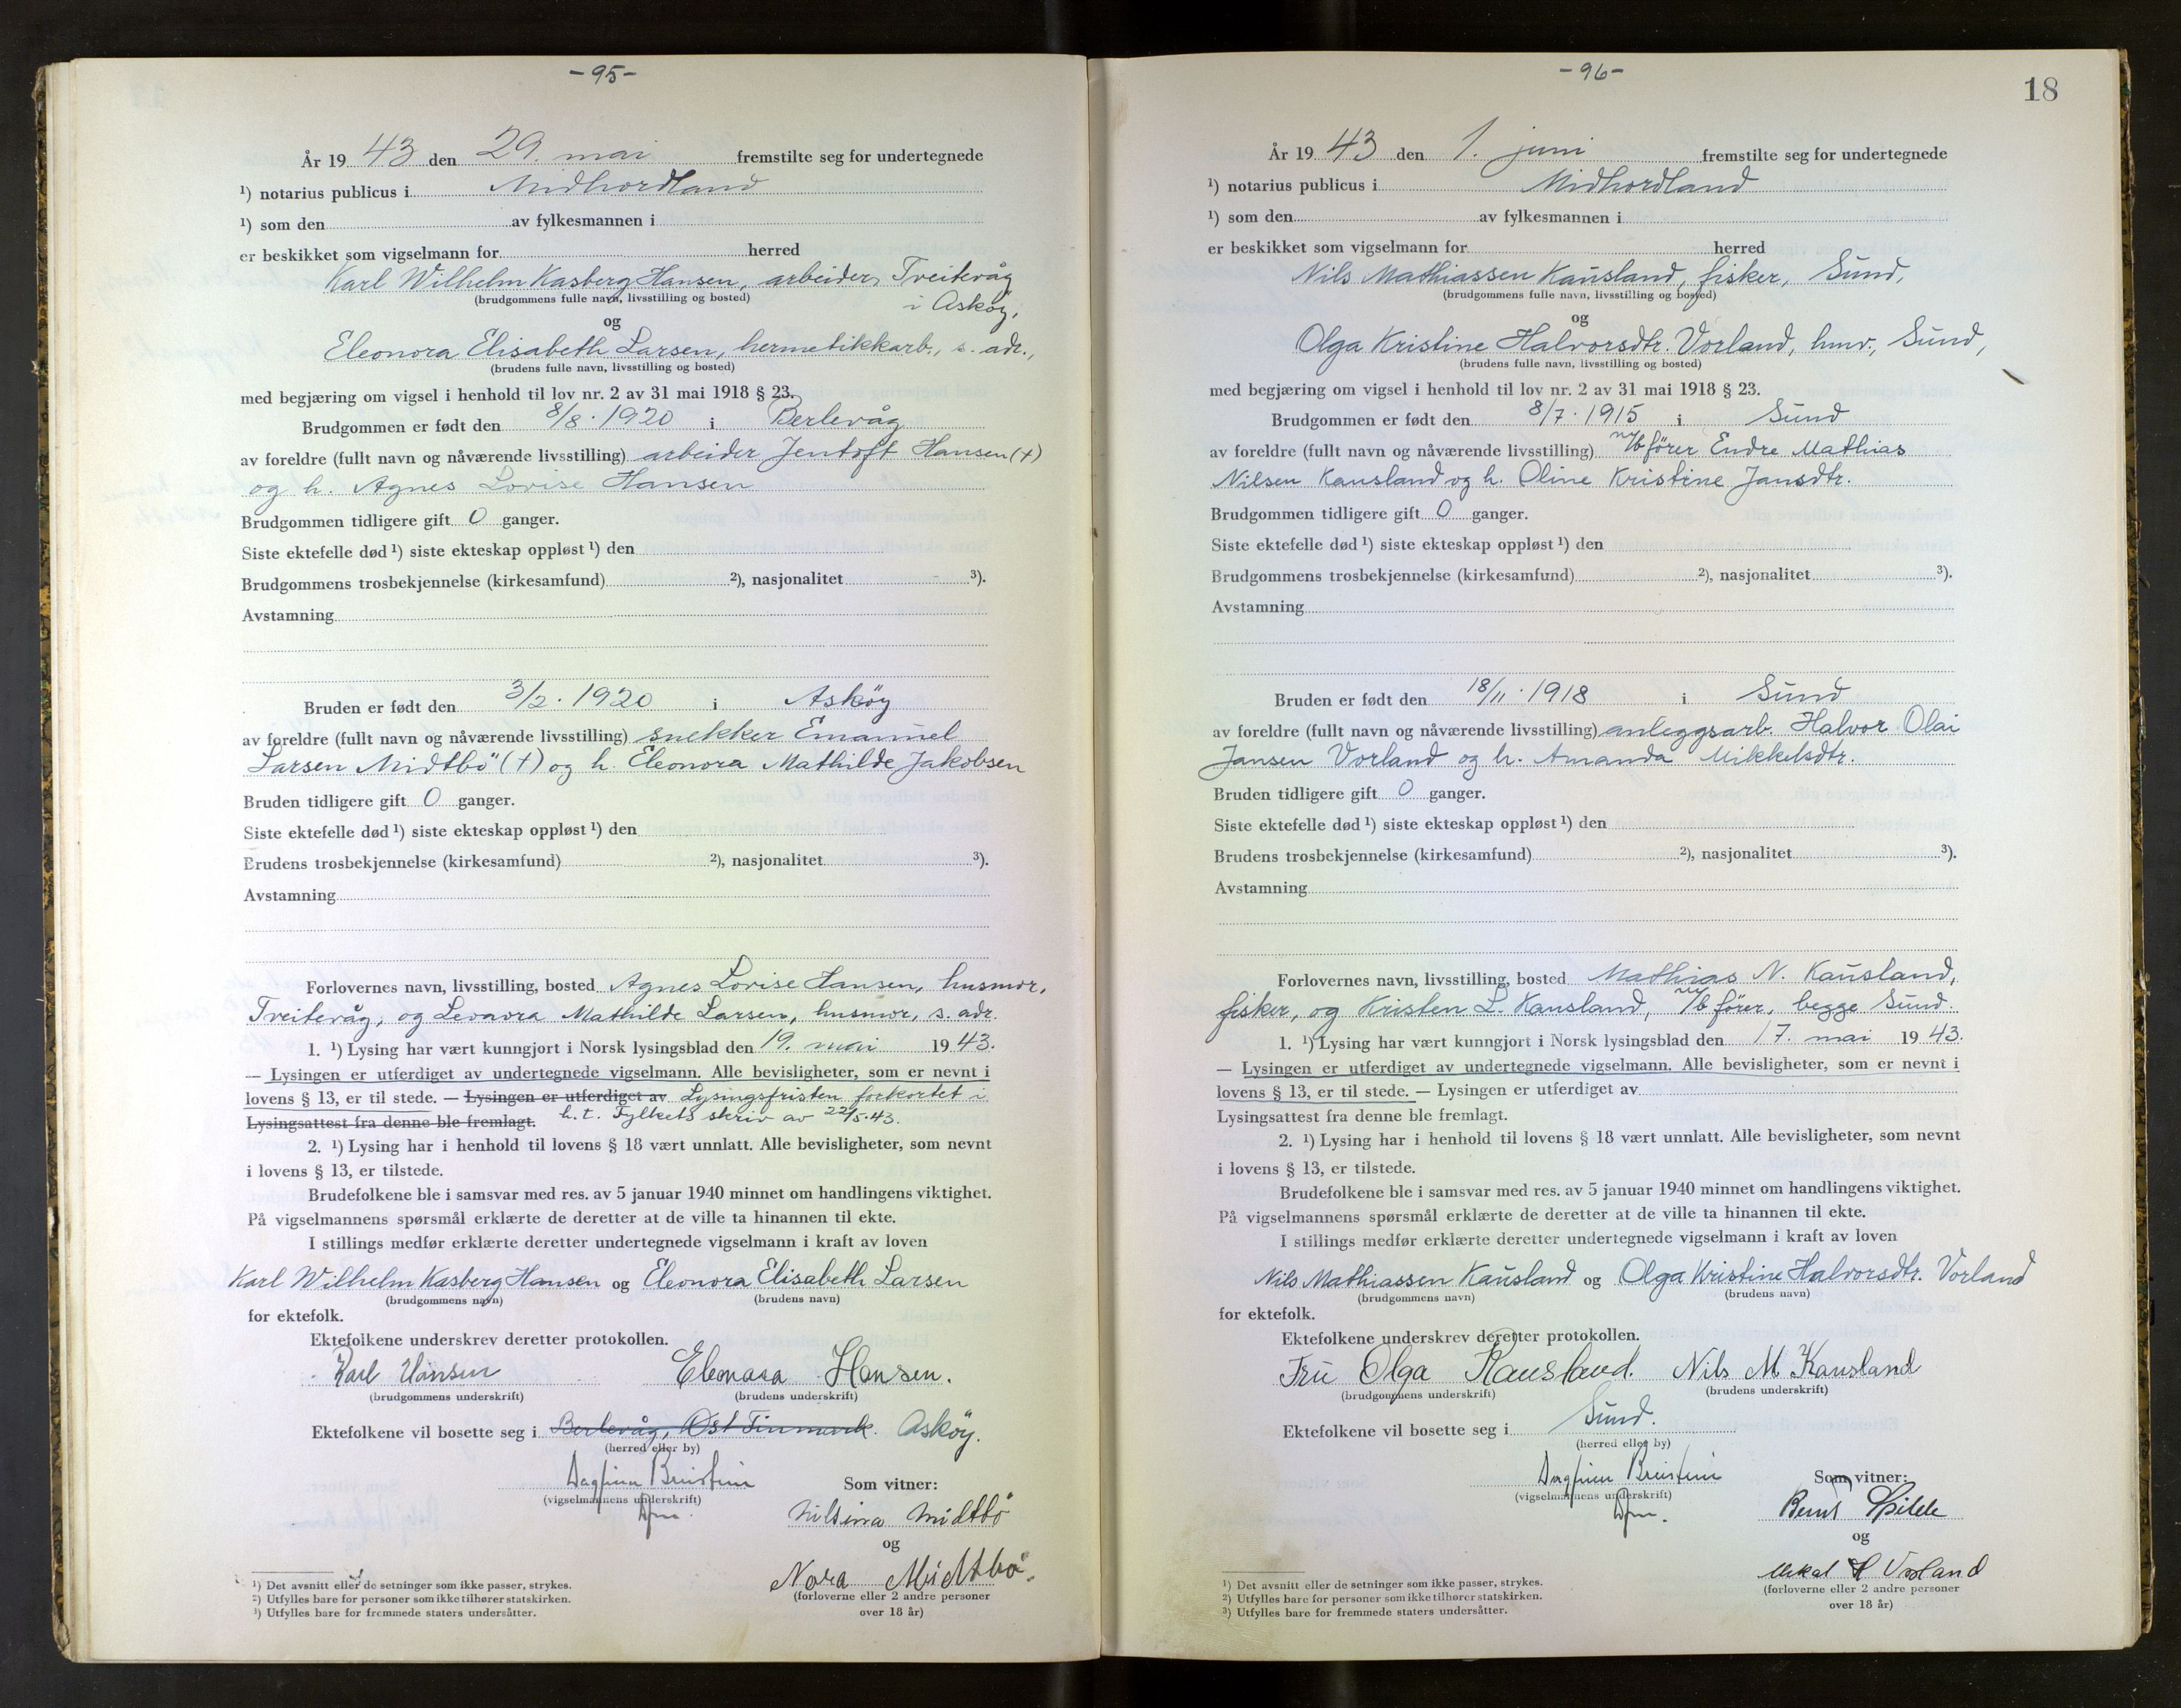 -95-
År 19 43 den 29. mai fremstilte seg for undertegnede
¹) notarius publicus i Midhordland
¹) som den av fylkesmannen i
er beskikket som vigselmann for herred
Karl Wilhelm Kasberg Hansen, arbeider, Treitevåg
(brudgommens fulle navn, livsstilling og bosted)
i Asköy,
og
Eleonora Elisabeth Larsen, hermetikkarb., s. adr.,
(brudens fulle navn, livsstilling og bosted)
med begjæring om vigsel i henhold til lov nr. 2 av 31 mai 1918 § 23.
Brudgommen er født den 8/8. 1920 i Berlevåg
av foreldre (fullt navn og nåværende livsstilling) arbeider Jentoft Hansen (+)
og h. Agnes Lovise Hansen
Brudgommen tidligere gift 0 ganger.
Siste ektefelle død ¹) siste ekteskap oppløst ¹) den
Brudgommens trosbekjennelse (kirkesamfund) ²), nasjonalitet ³).
Avstamning
Bruden er født den 3/2. 1920 i Asköy
av foreldre (fullt navn og nåværende livsstilling) snekker Emanuel
Larsen Midtbö (+) og h. Eleonora Mathilde Jakobsen
Bruden tidligere gift 0 ganger.
Siste ektefelle død ¹) siste ekteskap oppløst ¹) den
Brudens trosbekjennelse (kirkesamfund) ²), nasjonalitet ³).
Avstamning
Forlovernes navn, livsstilling, bosted Agnes Lovise Hansen, husmor,
Treitevåg, og Leonora Mathilde Larsen, husmor, s. adr.
1. ¹) Lysing har vært kunngjort i Norsk lysingsblad den 19. mai 1943.
— Lysingen er utferdiget av undertegnede vigselmann. Alle bevisligheter, som er nevnt i
lovens § 13, er til stede. — Lysingen er utferdiget av Lysingsfristen forkortet i
Lysingsattest fra denne ble fremlagt. h.t. Fylkets skriv av 22/5.43.
2. ¹) Lysing har i henhold til lovens § 18 vært unnlatt. Alle bevisligheter, som nevnt
i lovens § 13, er tilstede.
Brudefolkene ble i samsvar med res. av 5 januar 1940 minnet om handlingens viktighet.
På vigselmannens spørsmål erklærte de deretter at de ville ta hinannen til ekte.
I stillings medfør erklærte deretter undertegnede vigselmann i kraft av loven
Karl Wilhelm Kasberg Hansen og Eleonora Elisabeth Larsen
(brudgommens navn) (brudens navn)
for ektefolk.
Ektefolkene underskrev deretter protokollen.
Karl Hansen Elenora Hansen.
(brudgommens underskrift) (brudens underskrift)
Ektefolkene vil bosette seg i Berlevåg, Øst Finmark. Asköy.
(herred eller by)
Dagfinn Breistein Som vitner:
(vigselmannens underskrift)
Dfm. Nilsina Midtbö
og
Nora Midtbö.
(forloverne eller 2 andre personer
over 18 år)
¹) Det avsnitt eller de setninger som ikke passer, strykes.
²) Utfylles bare for personer som ikke tilhører statskirken.
³) Utfylles bare for fremmede staters undersåtter.
-96-
18
År 19 43 den 1. juni fremstilte seg for undertegnede
¹) notarius publicus i Midhordland
¹) som den av fylkesmannen i
er beskikket som vigselmann for herred
Nils Mathiassen Kausland, fisker, Sund,
(brudgommens fulle navn, livsstilling og bosted)
og
Olga Kristine Halvorsdtr. Vorland, hmv., Sund,
(brudens fulle navn, livsstilling og bosted)
med begjæring om vigsel i henhold til lov nr. 2 av 31 mai 1918 § 23.
Brudgommen er født den 8/7. 1915 i Sund
av foreldre (fullt navn og nåværende livsstilling) m/b förer Endre Mathias
Nilsen Kausland og h. Oline Kristine Jansdtr.
Brudgommen tidligere gift 0 ganger.
Siste ektefelle død ¹) siste ekteskap oppløst ¹) den
Brudgommens trosbekjennelse (kirkesamfund) ²), nasjonalitet ³).
Avstamning
Bruden er født den 18/11. 1918 i Sund
av foreldre (fullt navn og nåværende livsstilling) anleggsarb. Halvor Olai
Jansen Vorland og h. Amanda Mikkelsdtr.
Bruden tidligere gift 0 ganger.
Siste ektefelle død ¹) siste ekteskap oppløst ¹) den
Brudens trosbekjennelse (kirkesamfund) ²), nasjonalitet ³).
Avstamning
Forlovernes navn, livsstilling, bosted Mathias N. Kausland,
fisker, og Kristen L. Kausland, m/b förer, begge Sund.
1. ¹) Lysing har vært kunngjort i Norsk lysingsblad den 17. mai 1943.
— Lysingen er utferdiget av undertegnede vigselmann. Alle bevisligheter, som er nevnt i
lovens § 13, er til stede. — Lysingen er utferdiget av
Lysingsattest fra denne ble fremlagt.
2. ¹) Lysing har i henhold til lovens § 18 vært unnlatt. Alle bevisligheter, som nevnt
i lovens § 13, er tilstede.
Brudefolkene ble i samsvar med res. av 5 januar 1940 minnet om handlingens viktighet.
På vigselmannens spørsmål erklærte de deretter at de ville ta hinannen til ekte.
I stillings medfør erklærte deretter undertegnede vigselmann i kraft av loven
Nils Mathiassen Kausland og Olga Kristine Halvorsdtr. Vorland
(brudgommens navn) (brudens navn)
for ektefolk.
Ektefolkene underskrev deretter protokollen.
Fru Olga Kausland. Nils M. Kausland
(brudgommens underskrift) (brudens underskrift)
Ektefolkene vil bosette seg i Sund.
(herred eller by)
Dagfinn Breistein Som vitner:
(vigselmannens underskrift)
Dfm. Bernt Spilde
og
H Vorland
(forloverne eller 2 andre personer
over 18 år)
¹) Det avsnitt eller de setninger som ikke passer, strykes.
²) Utfylles bare for personer som ikke tilhører statskirken.
³) Utfylles bare for fremmede staters undersåtter.